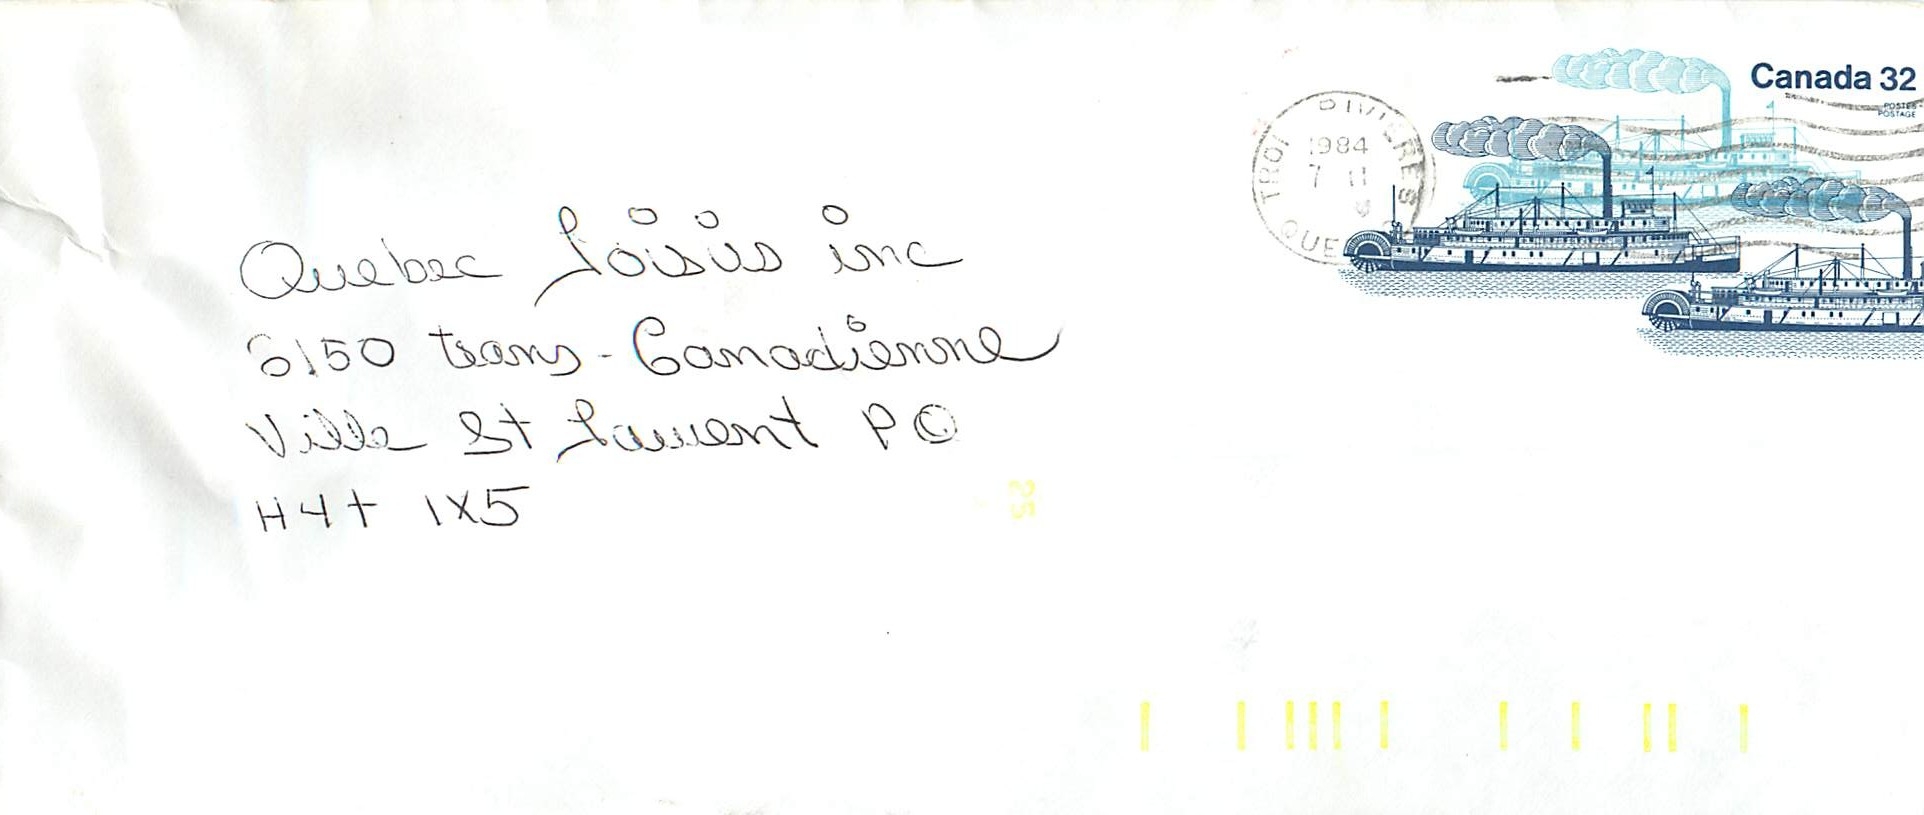 Canada 32
POSTES
POSTAGE
TROI RIVIERES
1984
7 II
QUE
Quebec Loisis inc
6150 trans-Canadienne
Ville St Laurent P Q
H4t 1X5
25